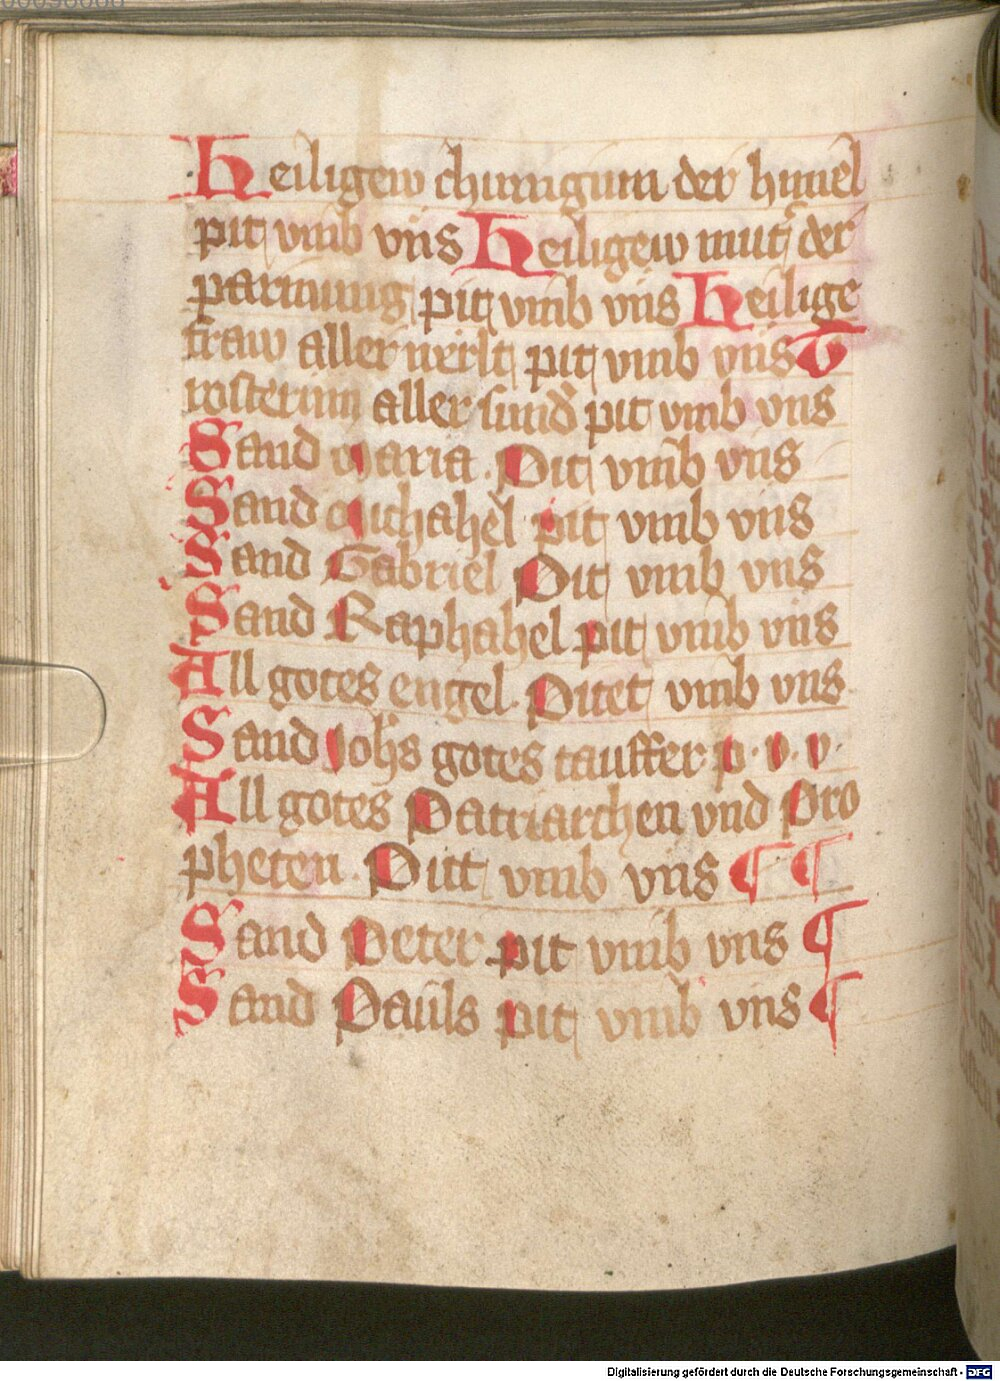 Heiligew chunigum der himel
pit vmb vns Heiligew mut̃ der
parmung pit vmb vns Heilige
fraw aller werlt pit vmb vns T
rosterinn aller sund̃ pit vmb vns
Sand Maria. Pit vmb vns
Sand Michahel pit vmb vns
Sand Gabriel Pit vmb vns
Sand Raphahel pit vmb vns
All gotes engel. Pittet vmb vns
Sand Johs gotes tauffer p. v. v.
All gotes Patriarchen vnd Pro
pheten. Pitt vmb vns ¶ ¶
Sand Peter pit vmb vns ¶
Sand Pauls pit vmb vns ¶
Digitalisierung gefördert durch die Deutsche Forschungsgemeinschaft - DFG